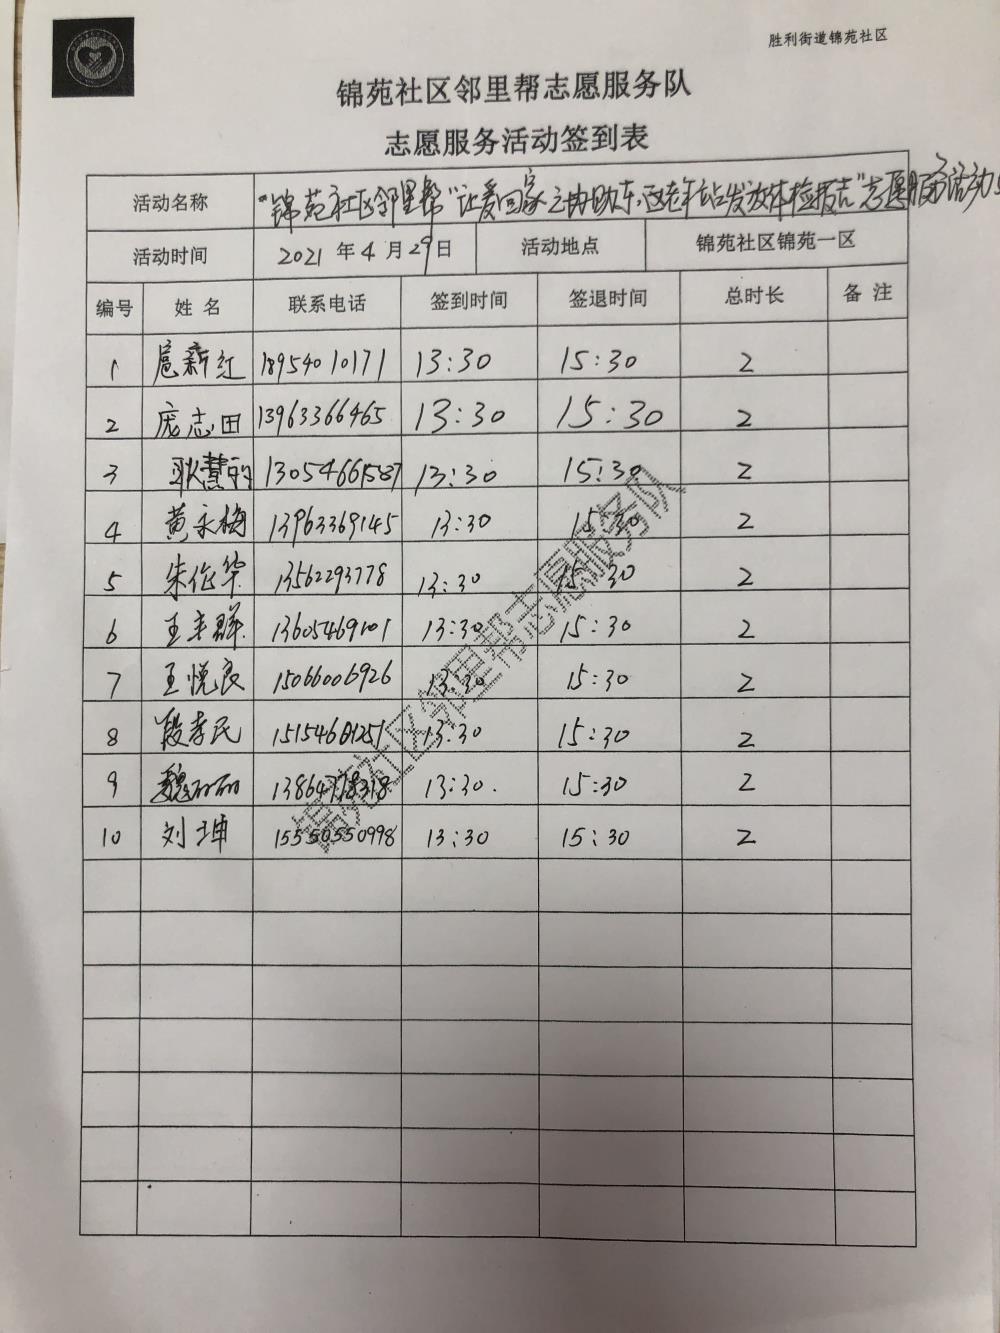 胜利街道锦苑社区
锦苑社区邻里帮志愿服务队
志愿服务活动签到表
活动名称 "锦苑社区邻里帮"让爱回家之协助东区老年站发放体检报告"志愿服务活动
活动时间 2021 年 4 月 29 日 活动地点 锦苑社区锦苑一区
编号 姓名 联系电话 签到时间 签退时间 总时长 备注
1 扈新红 18954010171 13:30 15:30 2
2 庞志田 13963366465 13:30 15:30 2
3 耿慧 13054661587 13:30 15:30 2
4 黄永梅 13963369145 13:30 15:30 2
5 朱作华 13562293778 13:30 15:30 2
6 王 群 13605469101 13:30 15:30 2
7 王悦良 15066006926 13:30 15:30 2
8 段孝民 13:30 15:30 2
9 魏丽丽 13:30 15:30 2
10 刘坤 15550550998 13:30 15:30 2
锦苑社区邻里帮志愿服务队